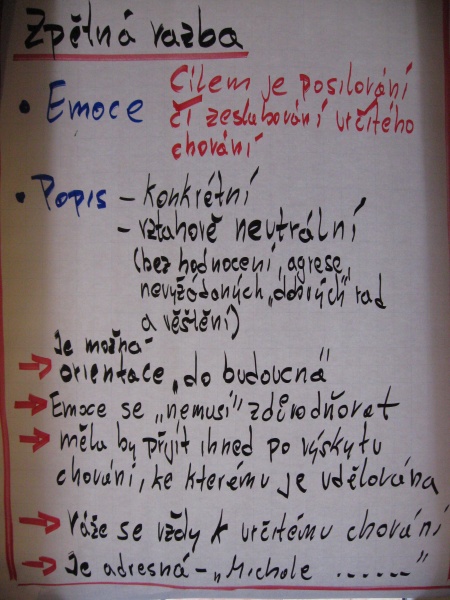 Zpětná vazba
Cílem je posilování
• Emoce či zeslabování určitého
chování
• Popis – konkrétní
– vztahově neutrální
(bez hodnocení, agrese,
nevyžádaných „dobrých" rad
a věštění)
Je možná-
orientace „do budoucna"
Emoce se „nemusí" zdůvodňovat
měla by přijít ihned po výskytu
chování, ke kterému je udělována
Váže se vždy k určitému chování
Je adresná – „Michale ......"